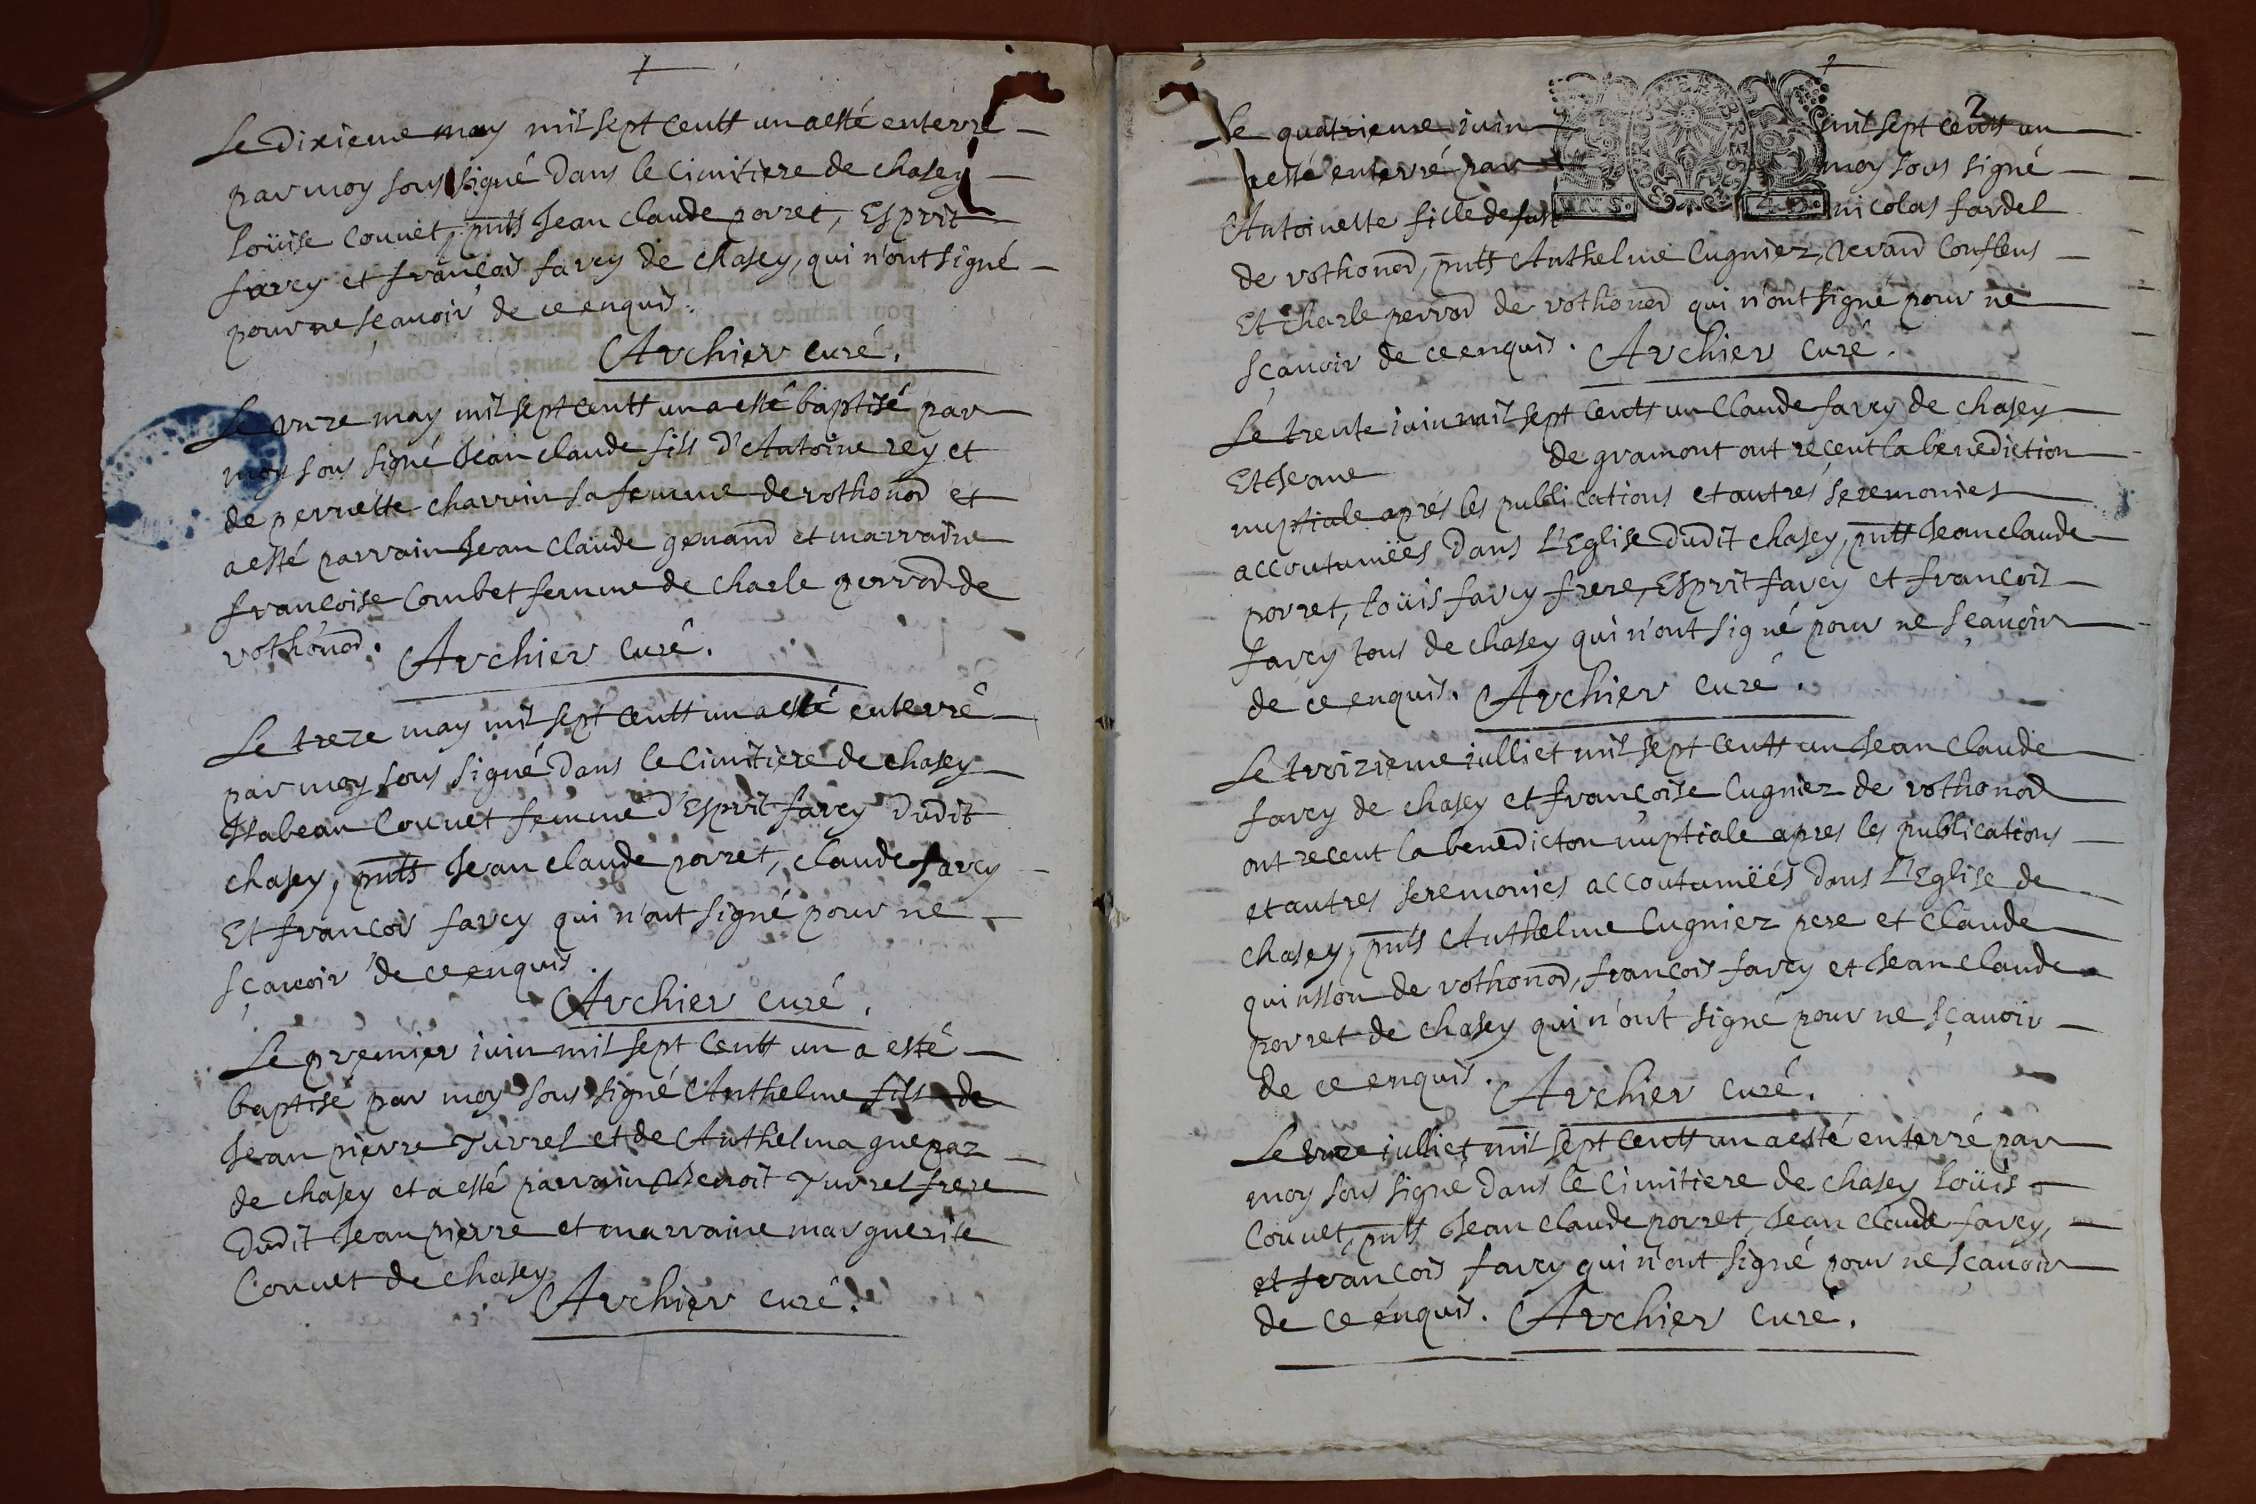 Le dixieme may mil sept centt un a esté enterré
par moy sous signé dans le cimitiere de chasey
loüise Couuet, pntts Jean claude porret, Esprit
farcy et françois farcy de chasey, qui n'ont signé
pour ne sçauoir de ce enquis.
Archier curé.
Le vnze may mil sept centt un a esté baptisé par
moy sous signé Jean claude fils d'Antoine rey et
de pernette charuin sa femme de rothonod et
a esté parrain Jean Claude genand et marraine
françoise Combet femme de charle perrod de
rothonod. Archier curé.
Le treze may mil sept centt un a esté enterré
par moy sous signé dans le cimitiere de chasey
Isabeau Couuet femme d'Esprit farcy dudit
chasey, pntts Jean claude porret, claude farcy
Et françois farcy qui n'ont signé pour ne
sçauoir de ce enquis
Archier curé.
Le premier iuin mil sept centt un a esté
baptisé par moy sous signé Anthelme fils de
Jean pierre Turrel et de Anthelma guepaz
de chasey et a esté parrain Benoit Turrel frere
dudit Jean pierre et marraine marguerite
Couuet de chasey
Archier curé.
2
Le quatrieme iuin mil sept centt un
a esté enterré par moy sous signé
Antoinette fille de nicolas fardel
de rothonod, pntts Anthelme Cugniez,
Et charle perrod de rothonod qui n'ont signé pour ne
sçauoir de ce enquis. Archier curé.
Le trente iuin mil sept centt un Claude farcy de chasey
Et Jeane de gramont ont recent la benediction
nuptiale aprés les publications et autres seremonies
accoutumëés dans L'Eglise dudit chasey, pntt Jean claude
porret, loüis farcy frere, Esprit farcy et françois
farcy tous de chasey qui n'ont signé pour ne sçauoir
de ce enquis. Archier curé.
Le troizieme iulliet mil sept centt un Jean Claude
farcy de chasey et françoise Cugniez de rothonod
ont recent la benedicton nuptiale apres les publications
et autres seremonies accoutumëés dans L'Eglise de
chasey, pntts Anthelme Cugniez pere et claude
quinsson de rothonod, françois farcy et Jean claude
porret de chasey qui n'ont signé pour ne sçauoir
de ce enquis. Archier curé.
Le vnze iulliet mil sept centt un a esté enterré par
moy sous signé dans le cimitiere de chasey loüis
Couuet, pntts Jean claude porret, Jean claude farcy,
et françois farcy qui n'ont signé pour ne sçauoir
de ce enquis. Archier curé.